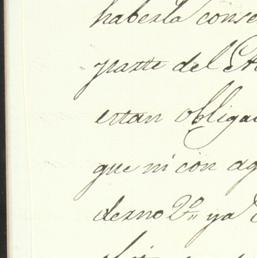 haberla conse
parte del
estan obliga
que ni con
dexno 2º ya